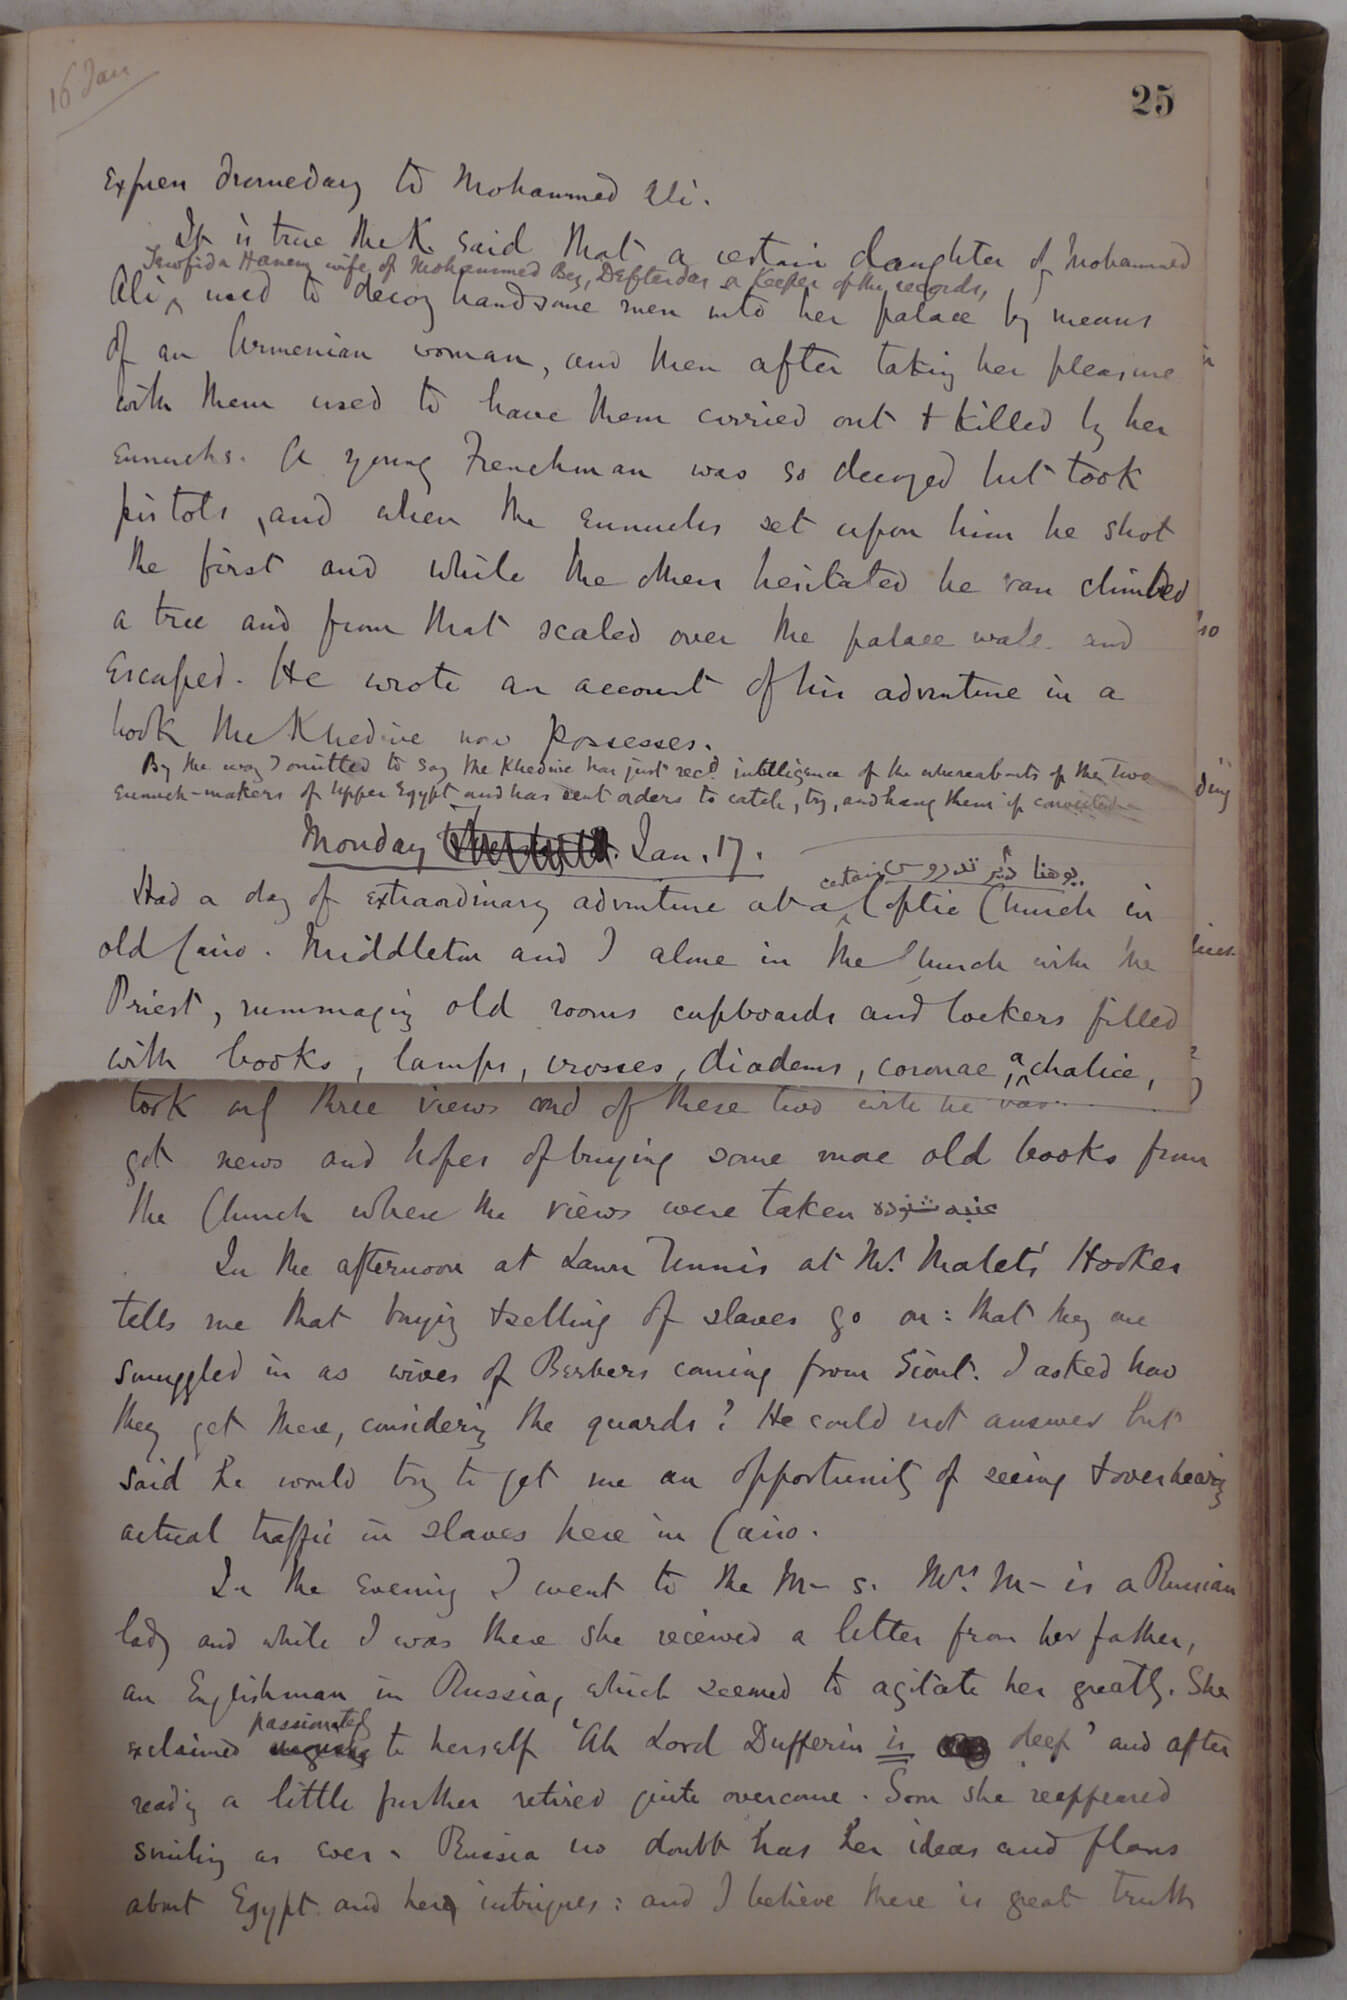 16 Jan
25
Expren dromedary to Mohammed Ali.
It is true the K. said that a certain daughter of Mohammed
Tewfida Hanem wife of Mohammed Bey, Defterdar or Keeper of the records,
Ali ^ used to decoy handsome men into her palace by means
of an Armenian woman, and then after taking her pleasure
with them used to have them carried out & killed by her
eunuchs. A young Frenchman was so decoyed but took
pistols, and when the eunuchs set upon him he shot
the first and while the others hesitated he ran climbed
a tree and from that scaled over the palace wall and
escaped. He wrote an account of his adventure in a
book the Khedive now possesses.
By the way I omitted to say the Khedive has just recd intelligence of the whereabouts of the two
eunuch-makers of Upper Egypt and has sent orders to catch, try, and hang them if convicted
Monday Jan. 17.
certain يوهنا دير تدروس
Had a day of extraordinary adventure at a ^ Coptic Church in
old Cairo. Middleton and I alone in the Church with the
Priest, rummaging old rooms cupboards and lockers filled
with books, lamps, crosses, diadems, coronae, a chalice,
took only three views and of these two with he was
got news and hopes of buying some more old books from
the Church where the views were taken
In the afternoon at Lawn Tennis at Mr. Malet's Hooker
tells me that buying & selling of slaves go on: that they are
smuggled in as wives of Berbers coming from Siout. I asked how
they get there, considering the guards? He could not answer but
said he would try to get me an opportunity of seeing & overhearing
actual traffic in slaves here in Cairo.
In the evening I went to the M- s. Mrs. M- is a Russian
lady and while I was there she received a letter from her father,
an Englishman in Russia, which seemed to agitate her greatly. She
passionately
exclaimed to herself 'Ah Lord Dufferin is deep' and after
reading a little further retired quite overcome. Soon she reappeared
smiling as ever. Russia no doubt has her ideas and plans
about Egypt and her intrigues: and I believe there is great truth